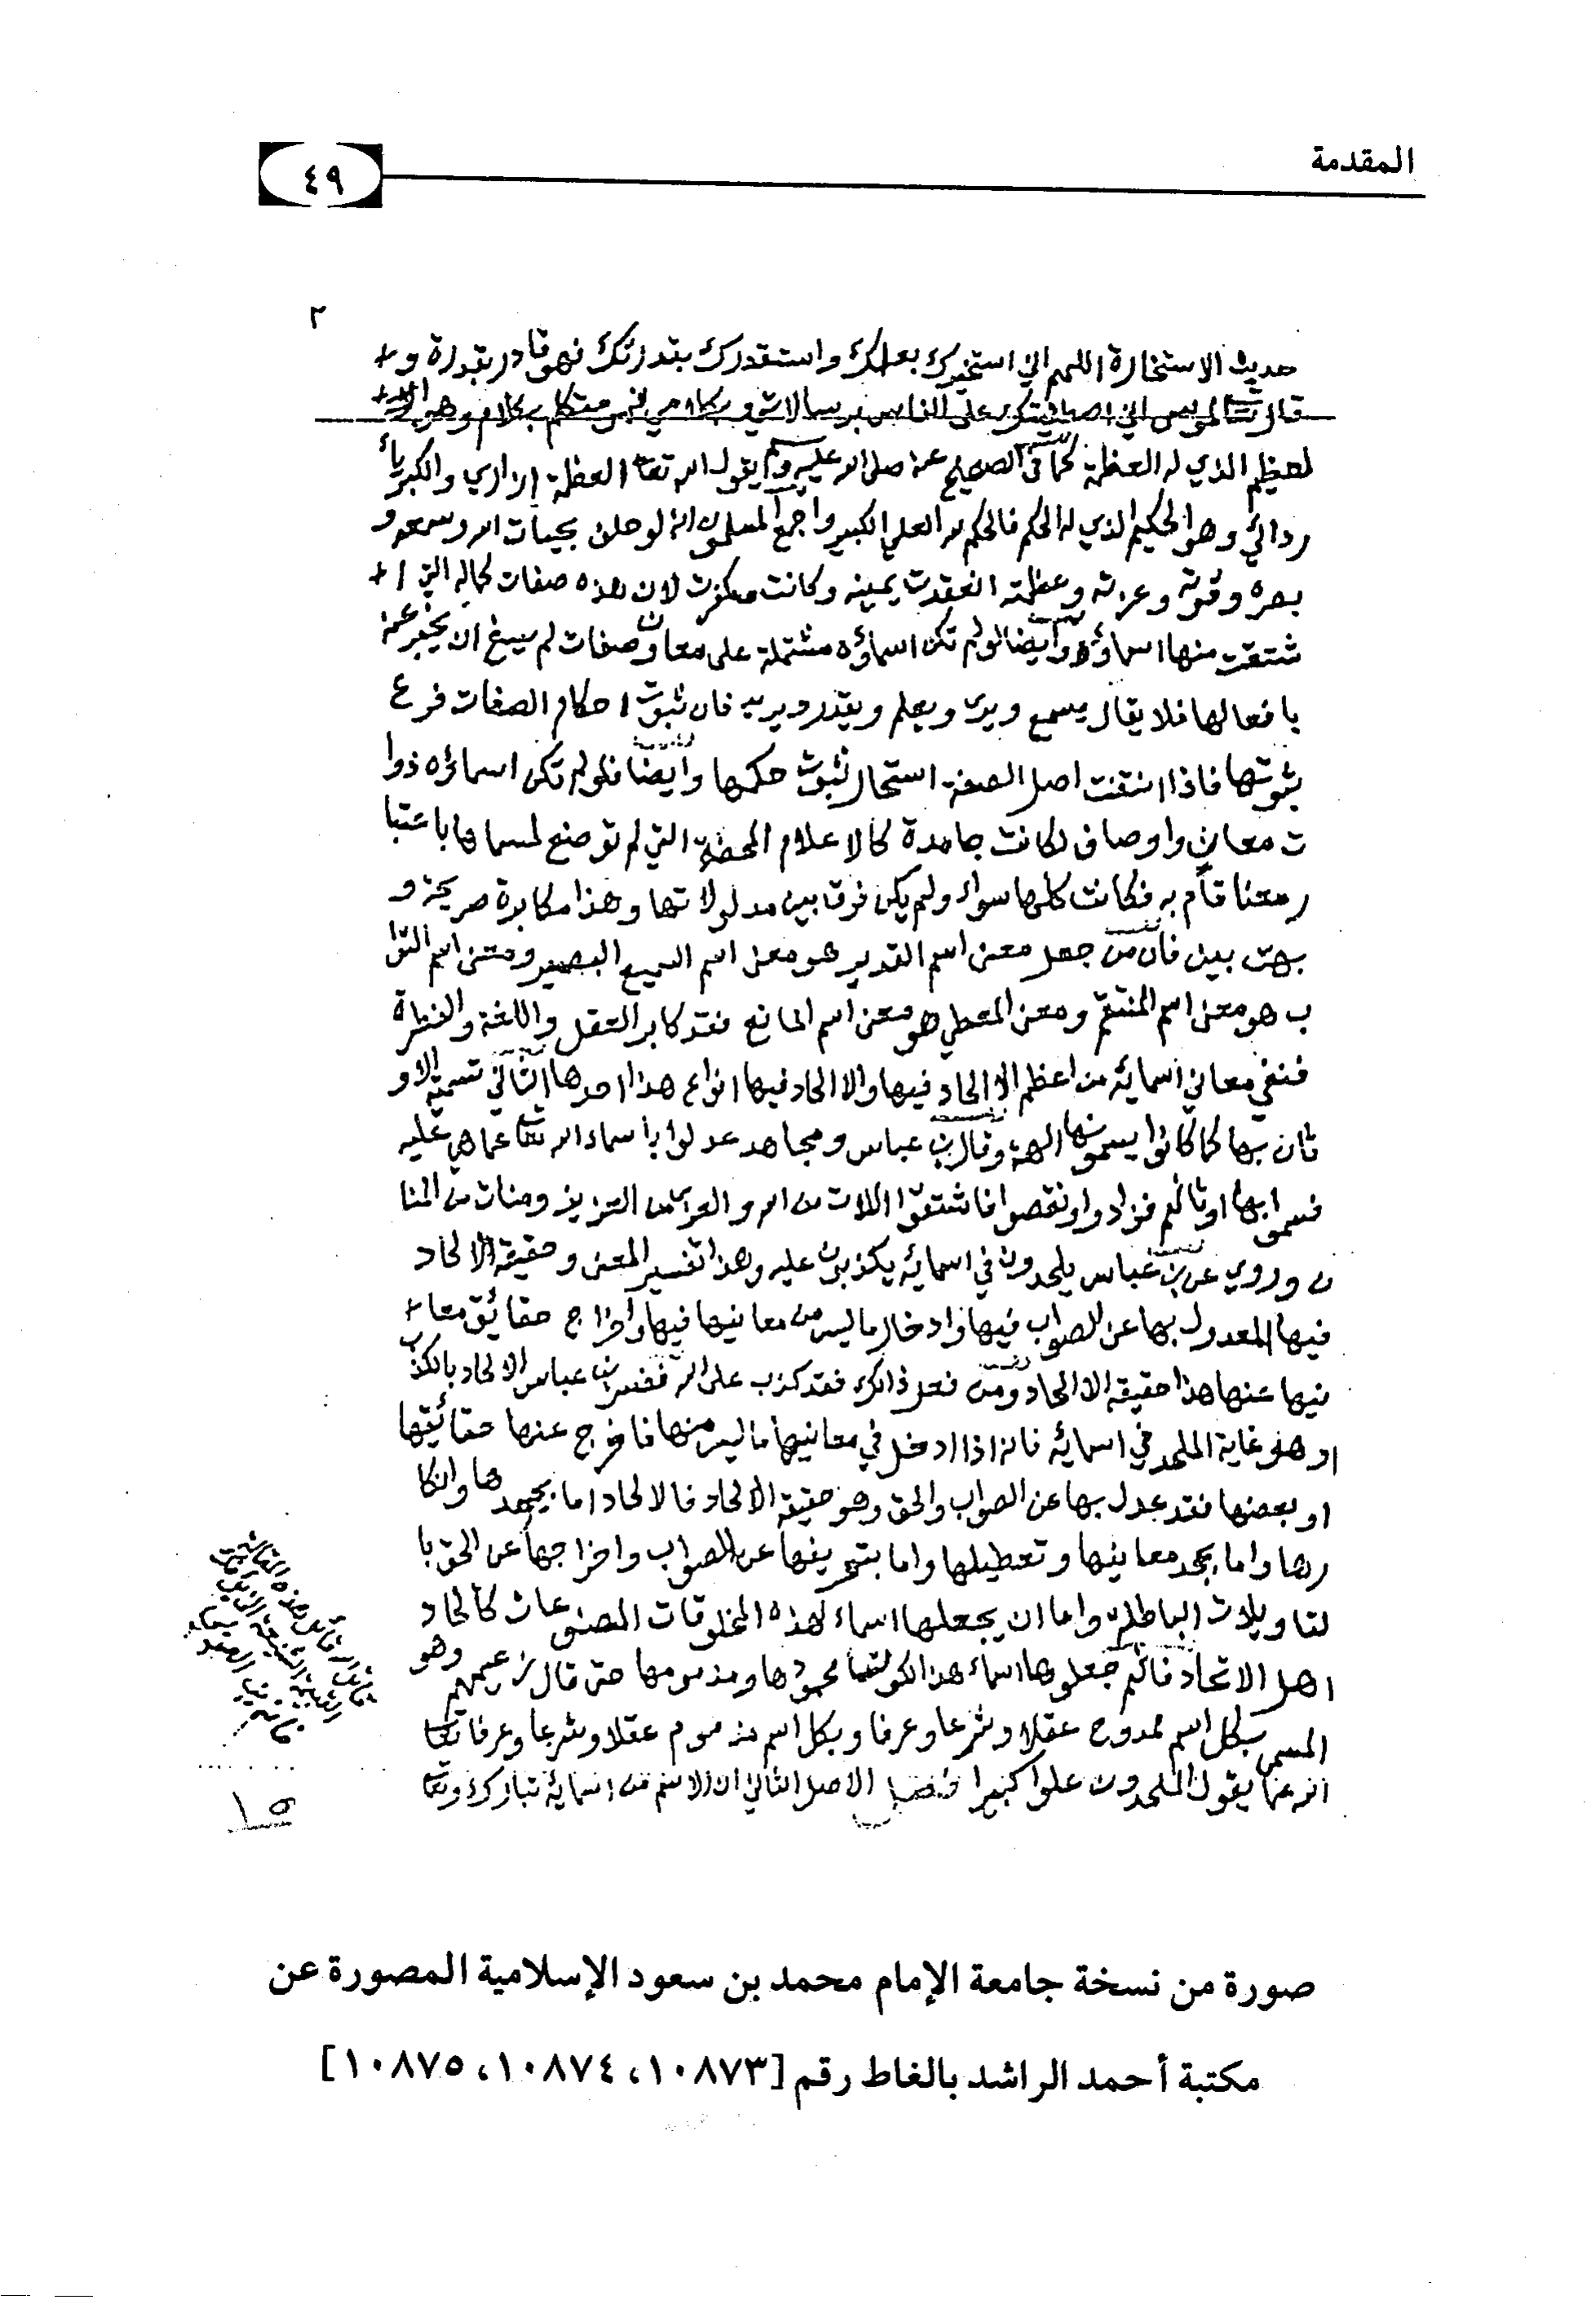 المقدمة
٤٩
٢
حديث الاستخارة اللهم اني استخيرك بعلمك واستقدرك بقدرتك فهو قادر بقدرة و
قال تعالى لموسى اني اصطفيتك على الناس برسالاتي وبكلامي فهو متكلم بكلام وهو ال
لعظيم الذي له العظمة كما في الصحيح عنه صلى الله عليه وسلم يقول الله تعا العظمة ازاري والكبرياء
ردائي وهو الحكيم الذي له الحكم فالحكم لله العلي الكبير واجمع المسلمون انه لو حلف بحيات الله وسمعه و
بصره وقوته وعزته وعظمته انعقدت يمينه وكانت مكفرت لان هذه صفات كماله التي ا
شتقت منها اسماؤه وأيضا لو لم تكن اسماؤه مشتملة على معان وصفات لم يسغ ان يخبر عنه
بافعالها فلا يقال يسمع ويرى ويعلم ويقدر ويريد فان ثبوت احكام الصفات فرع
ثبوتها فاذا انتفت اصل الصفة استحال ثبوت حكمها وأيضا فلو لم تكن اسماؤه ذوا
ت معان واوصاف لكانت جامدة كالاعلام المحضة التي لم توضع لمسماها باعتبا
ر معنا قام به فكانت كلها سواء ولم يكن فرق بين مدلولاتها وهذا مكابرة صريحة و
بهت بين فان من جعل معنى اسم القدير هو معنى اسم السميع البصير ومعنى اسم التوا
ب هو معنى اسم المنتقم ومعنى المعطي هو معنى اسم المانع فقد كابر العقل واللغة والفطرة
فنفي معاني اسمائه من اعظم الالحاد فيها والالحاد فيها انواع هذا احدها الثاني تسمية الاو
ثان بها كما كانوا يسمونها الهة وقال بن عباس ومجاهد عدلوا باسماء الله تعا عما هي عليه
فسموا بها اوثانهم فزادوا ونقصوا فاشتقوا اللات من الله والعزى من العزيز ومنات من المنا
ن وروي عن بن عباس يلحدون في اسمائه يكذبون عليه وهذا تفسير المعنى وحقيقة الالحاد
فيها العدول بها عن الصواب فيها وادخال ما ليس من معانيها فيها واخراج حقائق معا
نيها عنها هذا حقيقة الالحاد ومن فعل ذالك فقد كذب على الله ففسر بن عباس الالحاد بالكذب
او هو غاية الملحد في اسمائه فانه اذا ادخل في معانيها ما ليس منها فاخرج عنها حقائيقها
او بعضها فقد عدل بها عن الصواب والحق وهو حقيقة الالحاد فالالحاد اما بجحدها وانكا
رها واما بجحد معانيها وتعطيلها واما بتحريفها عن الصواب واخراجها عن الحق با
لتاويلات الباطلة واما ان يجعلها اسماء لهذه المخلوقات المصنوعات كالحاد
اهل الاتحاد فانهم جعلوها اسماء هذا الكون محمودها ومذمومها حتى قال زعيمهم وهو
المسمى بكل اسم ممدوح عقلا وشرعا وعرفا وبكل اسم مذموم عقلا وشرعا وعرفا تعا
الله عما يقول الملحدون علوا كبيرا فصل الاصل الثاني ان الاسم من اسمائه تبارك وتعا
صورة من نسخة جامعة الإمام محمد بن سعود الإسلامية المصورة عن
مكتبة أحمد الراشد بالغاط رقم [١٠٨٧٣، ١٠٨٧٤، ١٠٨٧٥]